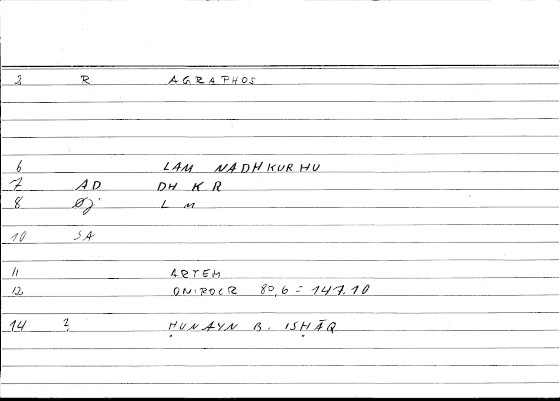 3 R AGRAPHOS
6 LAM NADHKURHU
7 AD DH K R
8 Øj L M
10 SA
11 ARTEM
12 ONIROCR 80,6 = 147.10
14 ? ḤUNAYN B. ISḤĀQ